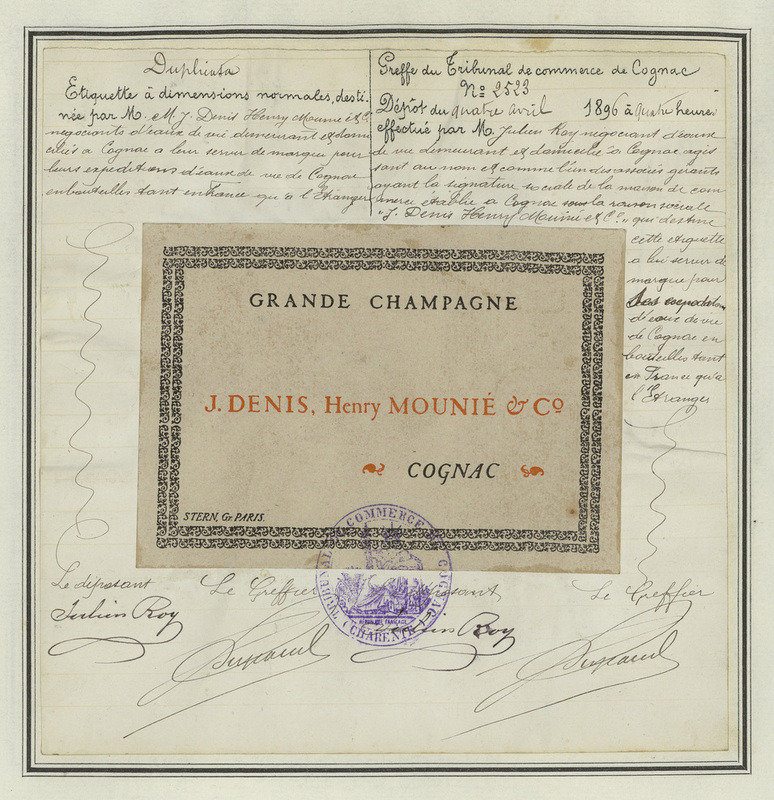 Duplicata
Etiquette à dimensions normales, desti-
née par M. M. J. Denis Henry Mounié & Cº
négociants d'eaux de vie demeurant et domi
ciliés à Cognac à leur servir de marque pour
leurs expéditions d'eaux de vie de Cognac
en bouteilles tant en France qu'à l'Etranger
Greffe du Tribunal de commerce de Cognac
Nº 2523
Dépôt du quatre avril 1896 à quatre heures
effectué par M. Julien Roy négociant d'eaux
de vie demeurant et domicilié à Cognac agis
sant au nom et comme l'un des associés gérants
ayant la signature sociale de la maison de com
merce établie à Cognac sous la raison sociale
"J. Denis Henry Mounié & Cº" qui destine
cette étiquette
à lui servir de
marque pour
d'eaux de vie
de Cognac en
bouteilles tant
en France qu'à
l'Etranger
GRANDE CHAMPAGNE
J. DENIS, Henry MOUNIÉ & Cº
COGNAC
STERN, Gr. PARIS.
TRIBUNAL DE COMMERCE DE COGNAC
RÉPUBLIQUE FRANÇAISE
(CHARENTE)
Le déposant
Le Greffier
déposant
Le Greffier
Julien Roy
Roy